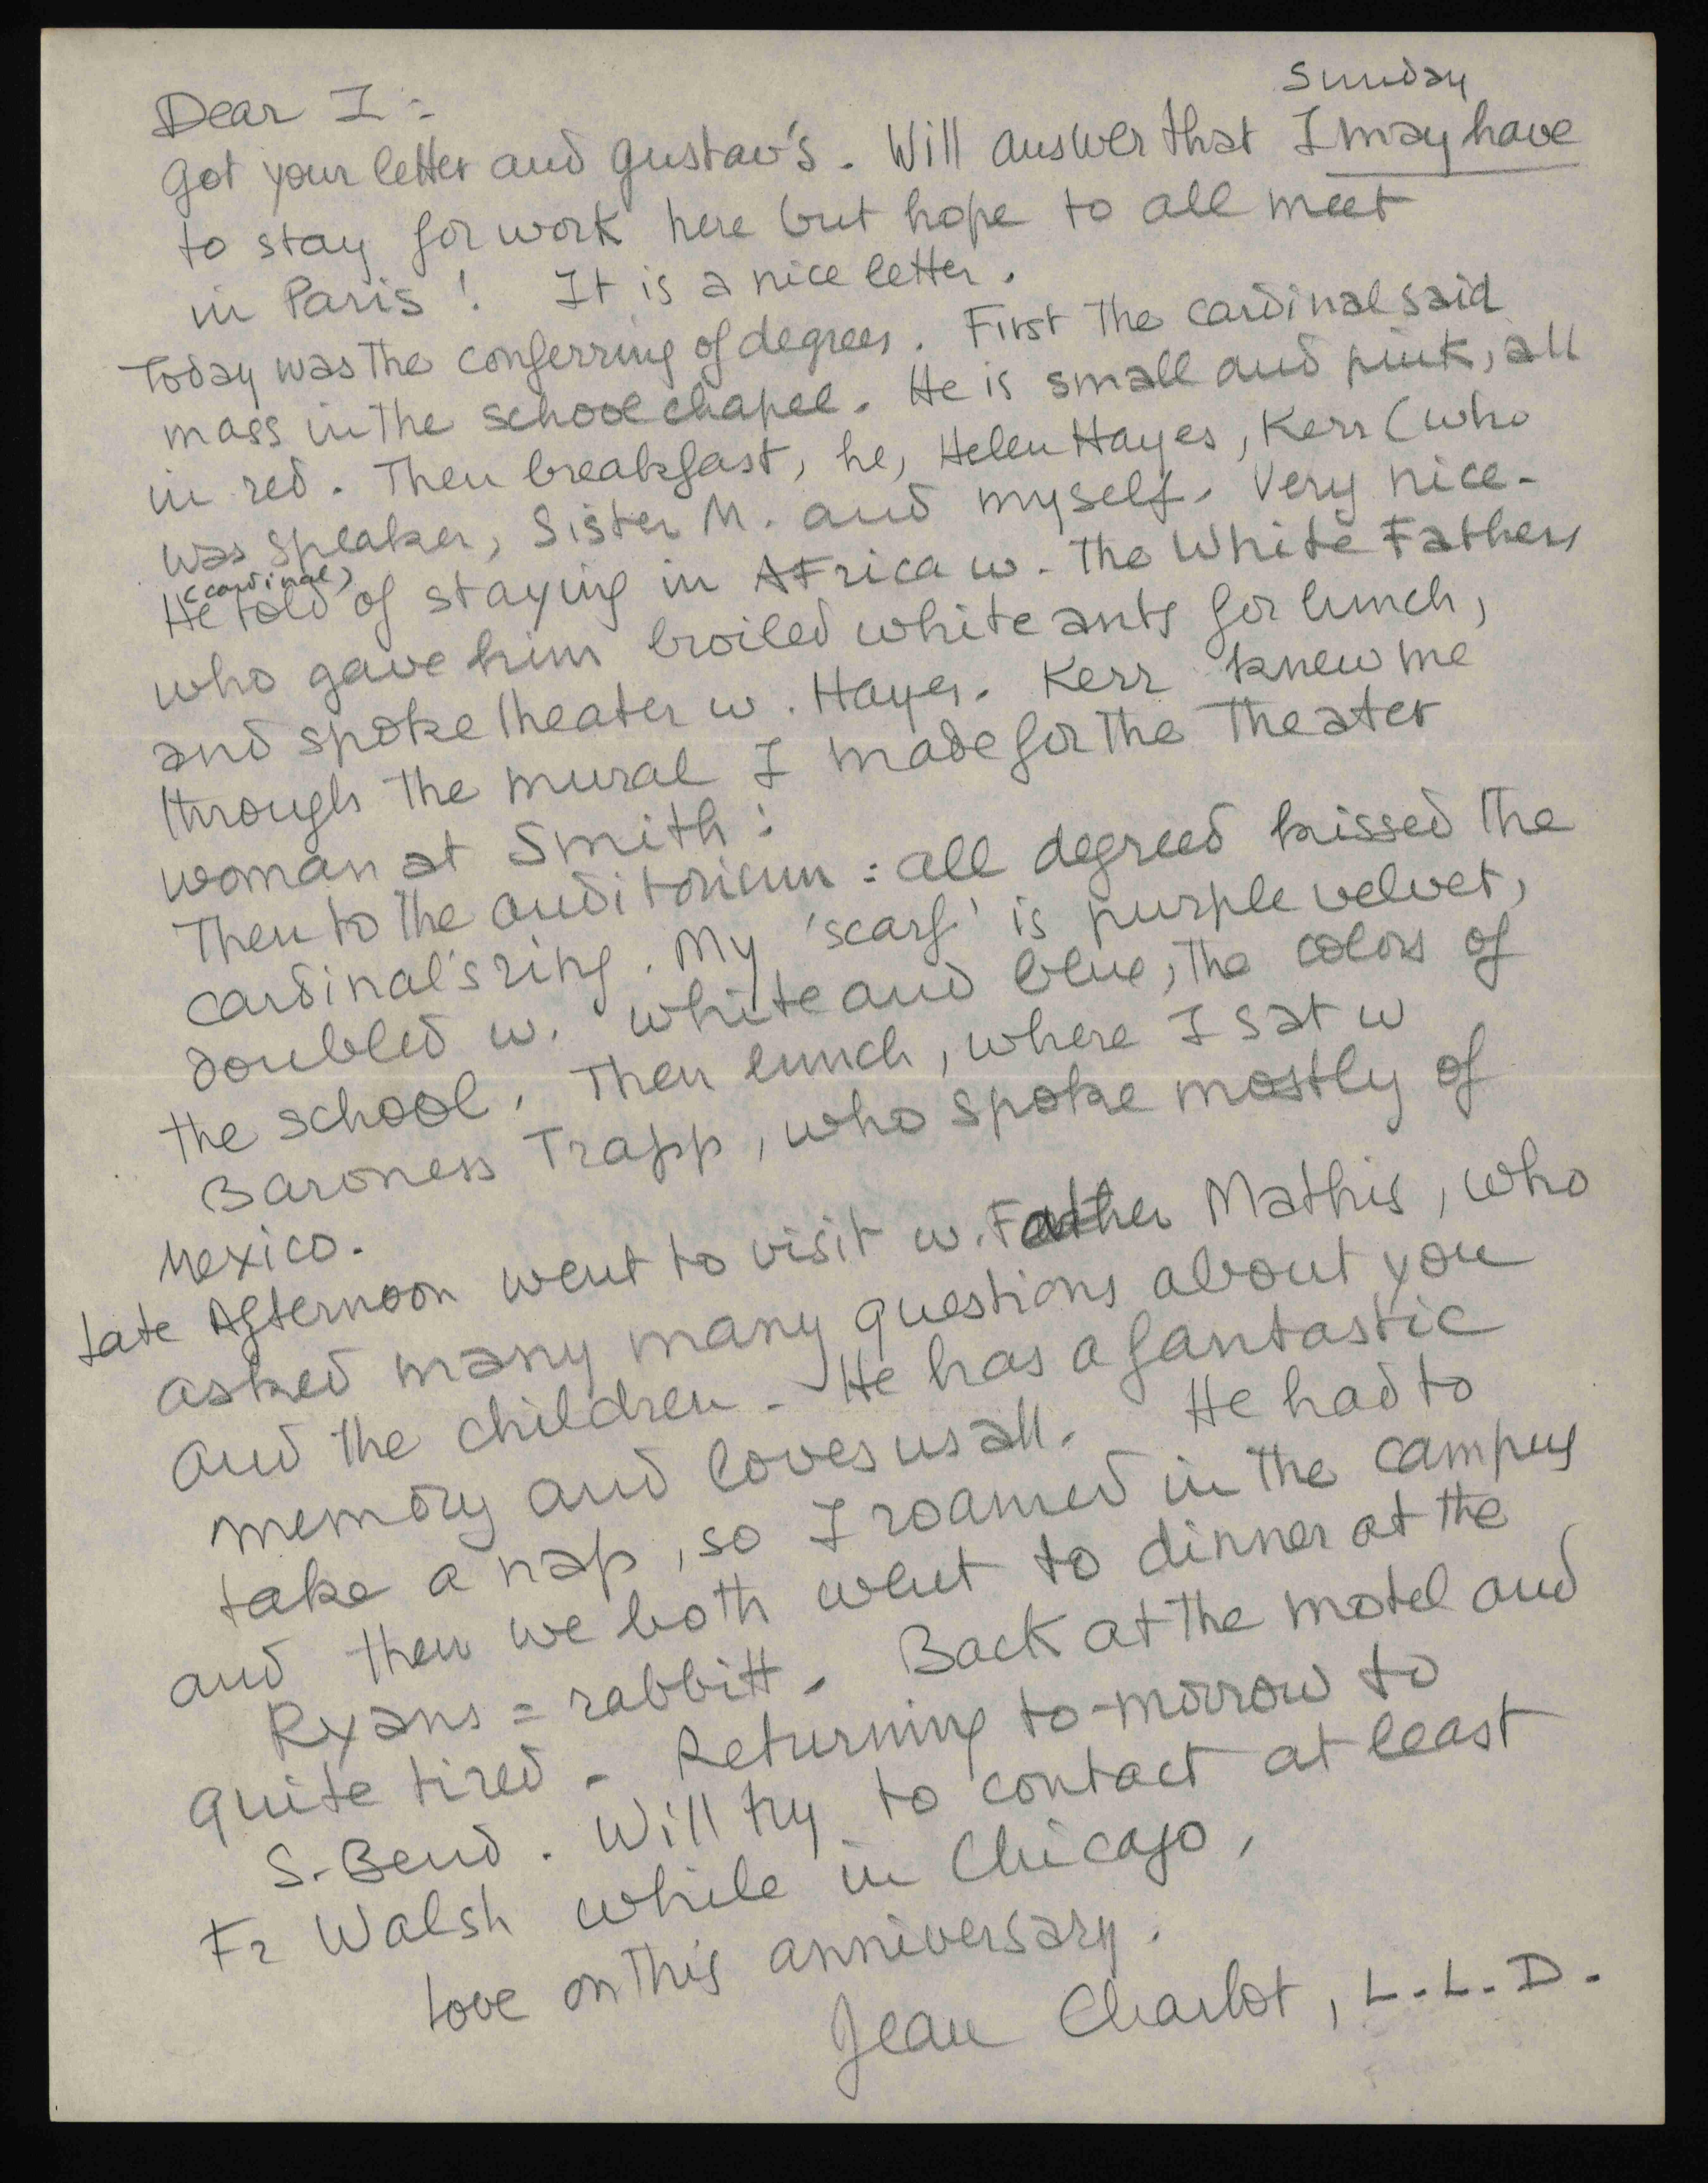 Sunday
Dear Z:
Got your letter and Gustav's. Will answer that I may have
to stay for work here but hope to all meet
in Paris! It is a nice letter.
Today was the conferring of degrees. First the cardinal said
mass in the school chapel. He is small and pink, all
in red. Then breakfast, he, Helen Hayes, Kerr (who
was speaker, Sister M. and myself. Very nice.
(cardinal)
He told of staying in Africa w. the White Fathers
who gave him broiled white ants for lunch,
and spoke theater w. Hayes. Kerr knew me
through the mural I made for the theater
woman at Smith:
Then to the auditorium: all degreed kissed the
cardinal's ring. My 'scarf' is purple velvet,
doubled w. white and blue, the colors of
the school. Then lunch, where I sat w
Baroness Trapp, who spoke mostly of
Mexico.
Late Afternoon went to visit w. Father Mathis, who
asked many many questions about you
and the children. He has a fantastic
memory and loves us all. He had to
take a nap, so I roamed in the campus
and then we both went to dinner at the
Ryans = rabbitt. Back at the motel and
quite tired. Returning to-morrow to
S. Bend. Will try to contact at least
Fr Walsh while in Chicago,
Love on this anniversary.
Jean Charlot, L.L.D.